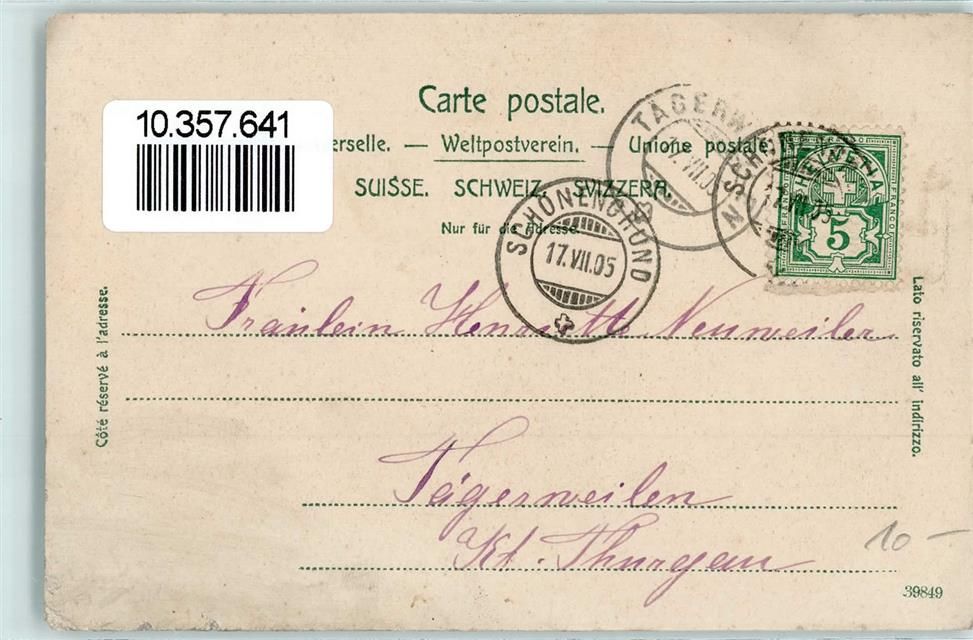 10.357.641
Carte postale.
erselle. — Weltpostverein. — Unione postale
SUISSE. SCHWEIZ. SVIZZERA.
Nur für die Adresse.
TÄGERW
17.VII.05
SCHÖNENGRUND
17.VII.05
SCHÖNEN
17.VII.05
HELVETIA
FRANCO
5
Fräulein Henriette Neuweiler
Tägerweilen
Kt. Thurgau
Côté réservé à l'adresse.
Lato riservato all' indirizzo.
10 —
39849